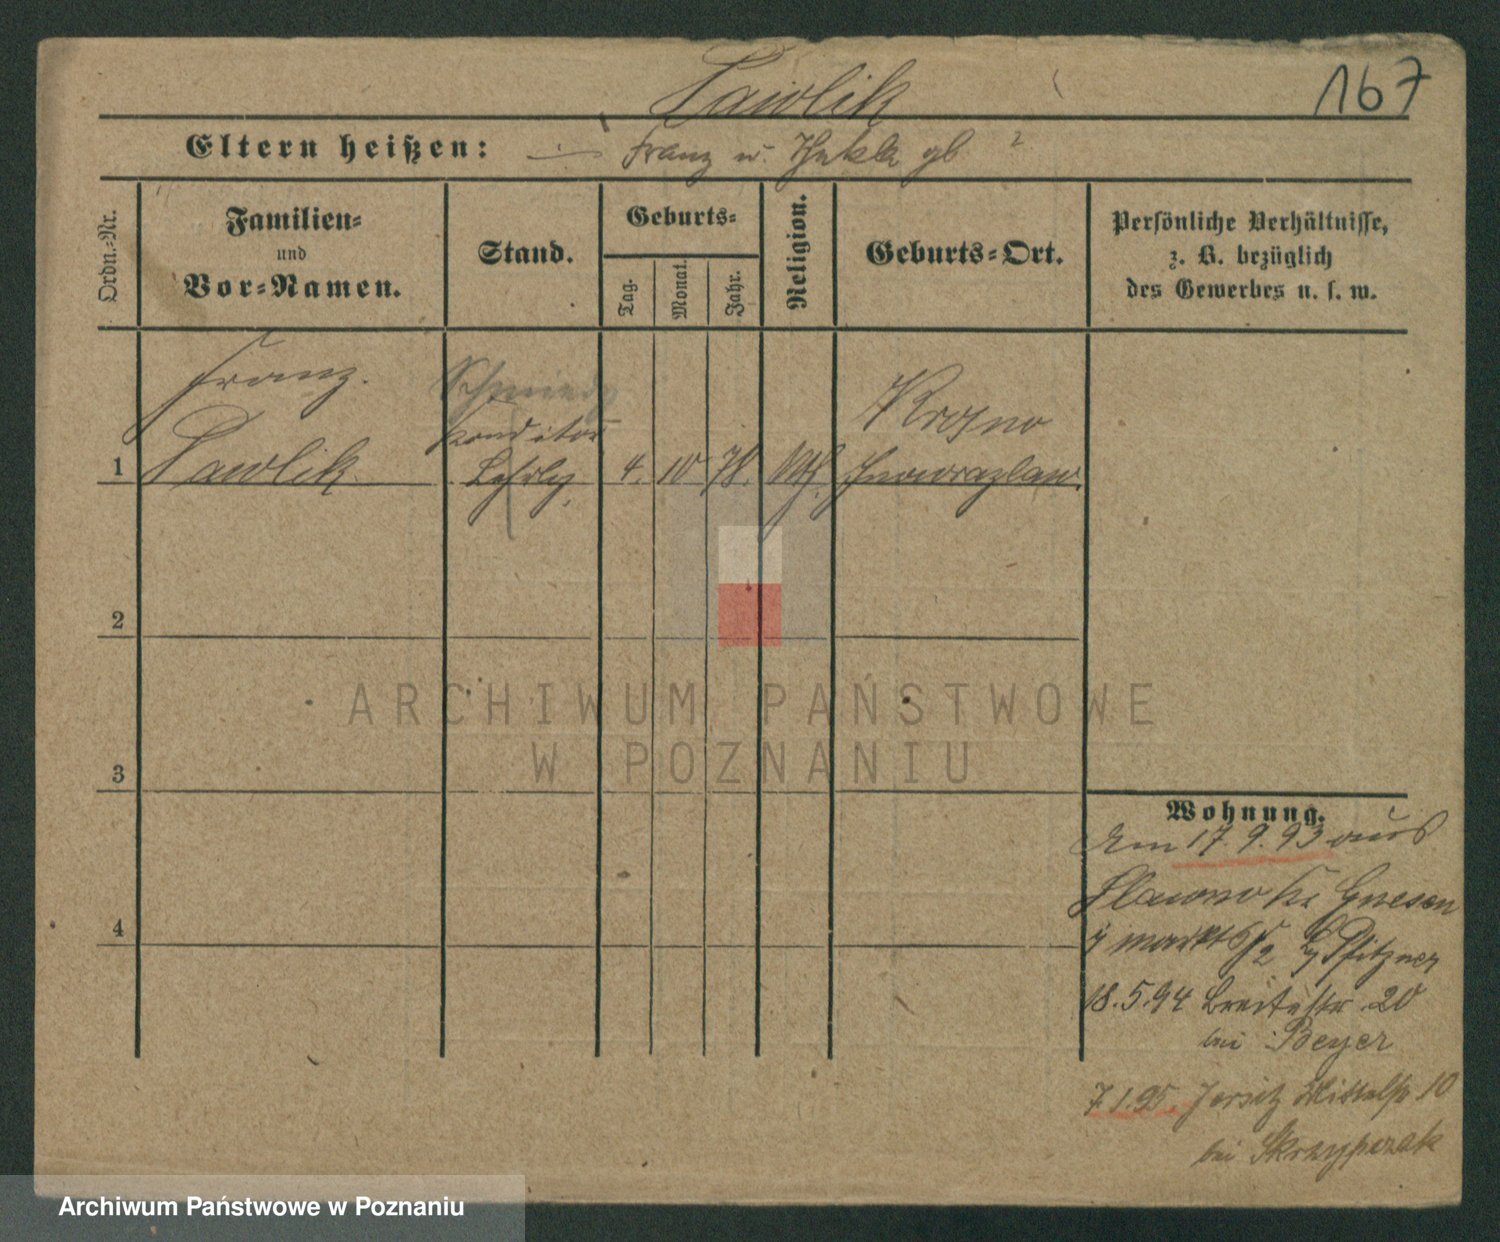 Pawlik
167
Eltern heißen: Franz u. Thekla gb ?
Ordn.-Nr.
Familien-
und
Vor-Namen.
Stand.
Geburts-
Tag.
Monat.
Jahr.
Religion.
Geburts-Ort.
Persönliche Verhältnisse,
z. B. bezüglich
des Gewerbes u. s. w.
Franz.
Schmied
Konditor
Krosno
1 Pawlik. Lehrlg. 4. 10 78. kth. Inowrazlaw.
2
3
4
ARCHIWUM PAŃSTWOWE
W POZNANIU
Wohnung.
Am 17. 9. 93 aus
Gnesen
markt 62 Pfitzner
18. 5. 94 Breitestr. 20
bei Beyer
7. 1. 95. Jersitz Mittelstr 10
bei Skrzypczak
Archiwum Państwowe w Poznaniu